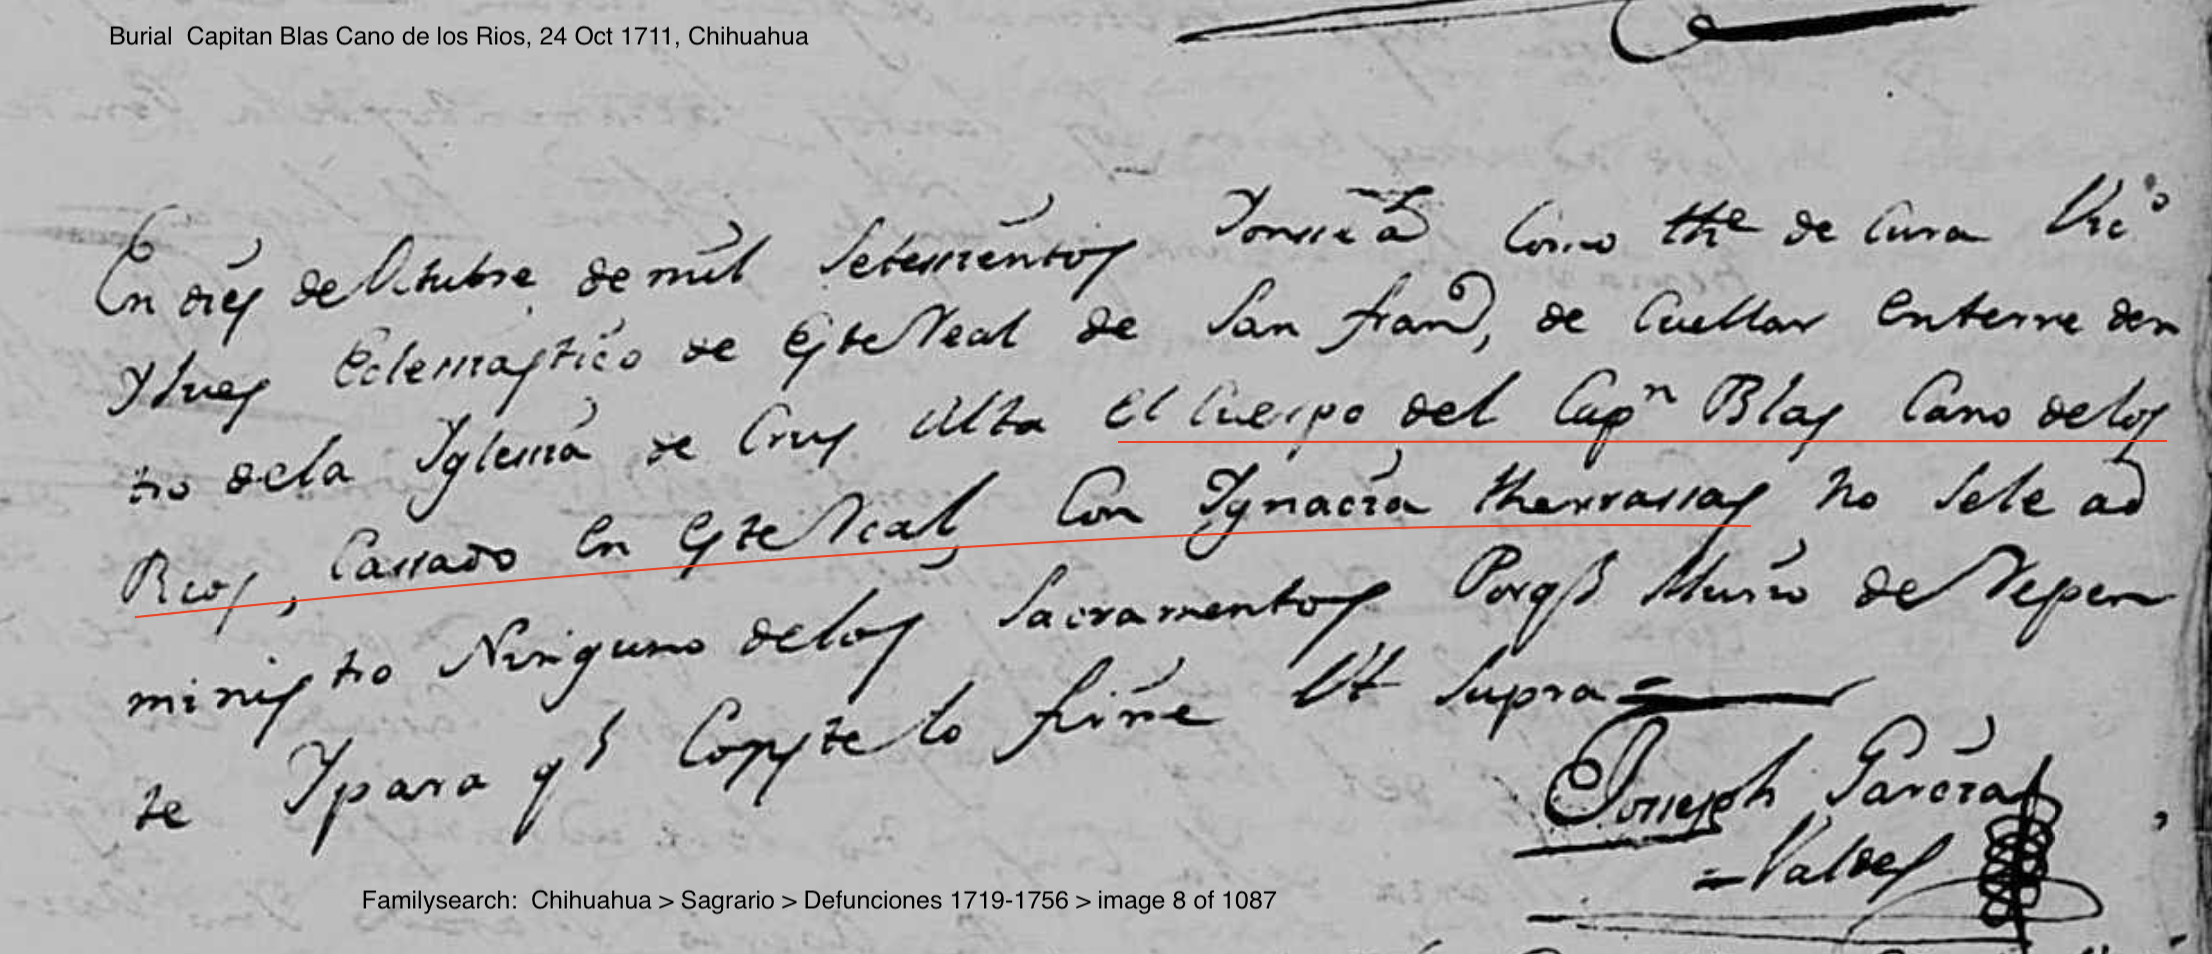 Burial Capitan Blas Cano de los Rios, 24 Oct 1711, Chihuahua
En dies de Octubre de mil setessientos como the de Cura Vico
y Jues Eclessiastico de este Real de San Franco, de Cuellar enterre den
tro de la Yglessia de Crus Alta el Cuerpo del Capn Blas Cano de los
Rios, Cassado en este Real, Con Ygnacia therrassas no se le ad
ministro Ninguno de los Sacramentos Porqe Murio de Repen
te Y para qe Conste lo firme Ut Supra =
Joseph Garcia
= Valdes
Familysearch: Chihuahua > Sagrario > Defunciones 1719-1756 > image 8 of 1087